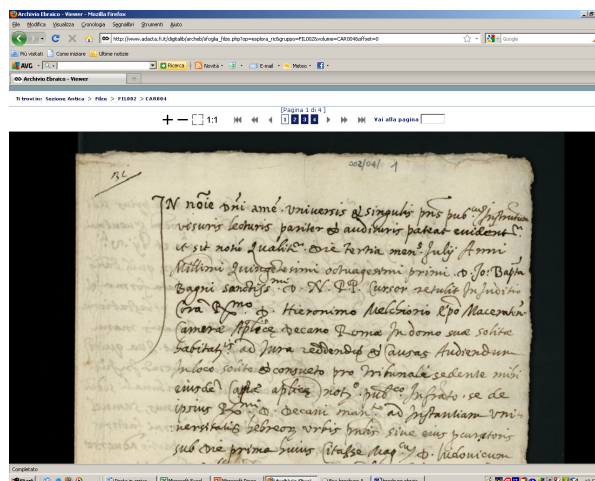 Archivio Ebraico - Viewer - Mozilla Firefox
File Modifica Visualizza Cronologia Segnalibri Strumenti Aiuto
Google
Più visitati Come iniziare Ultime notizie
AVG Ricerca Novità E-mail Meteo
Archivio Ebraico - Viewer
Ti trovi in: Sezione Antica > Filze > FIL002 > CAR004
[Pagina 1 di 4]
1:1 1 2 3 4 Vai alla pagina
002/04/ 1
IN noie dni amé. Universis & singulis pns pub.
visuris lecturis pariter & audituris pateat evident
ut sit notu die tertia mens Julij Anni
Millimi Quingetesimi octuagesimi primi D. Jo: Bapta
Bagni sanctiss D. N. PP. Cursor retulit in Juditio
Cora Rmo D. Hieronimo Melchiorio Epo Maceraten
Camere Aplice Decano Rome In domo sue solite
habitat ad Jura reddendu & Causas Audiendum
In loco solito & consueto pro Tribunale sedente mihi
eiusde aplice not pub Infrato se de
ipsius Rmi D. Decani man ad Instantiam Uni-
versitatis hebreor Urbis sive eius
sub die prima huius Citasse Mag D. Ludovicum
Completato